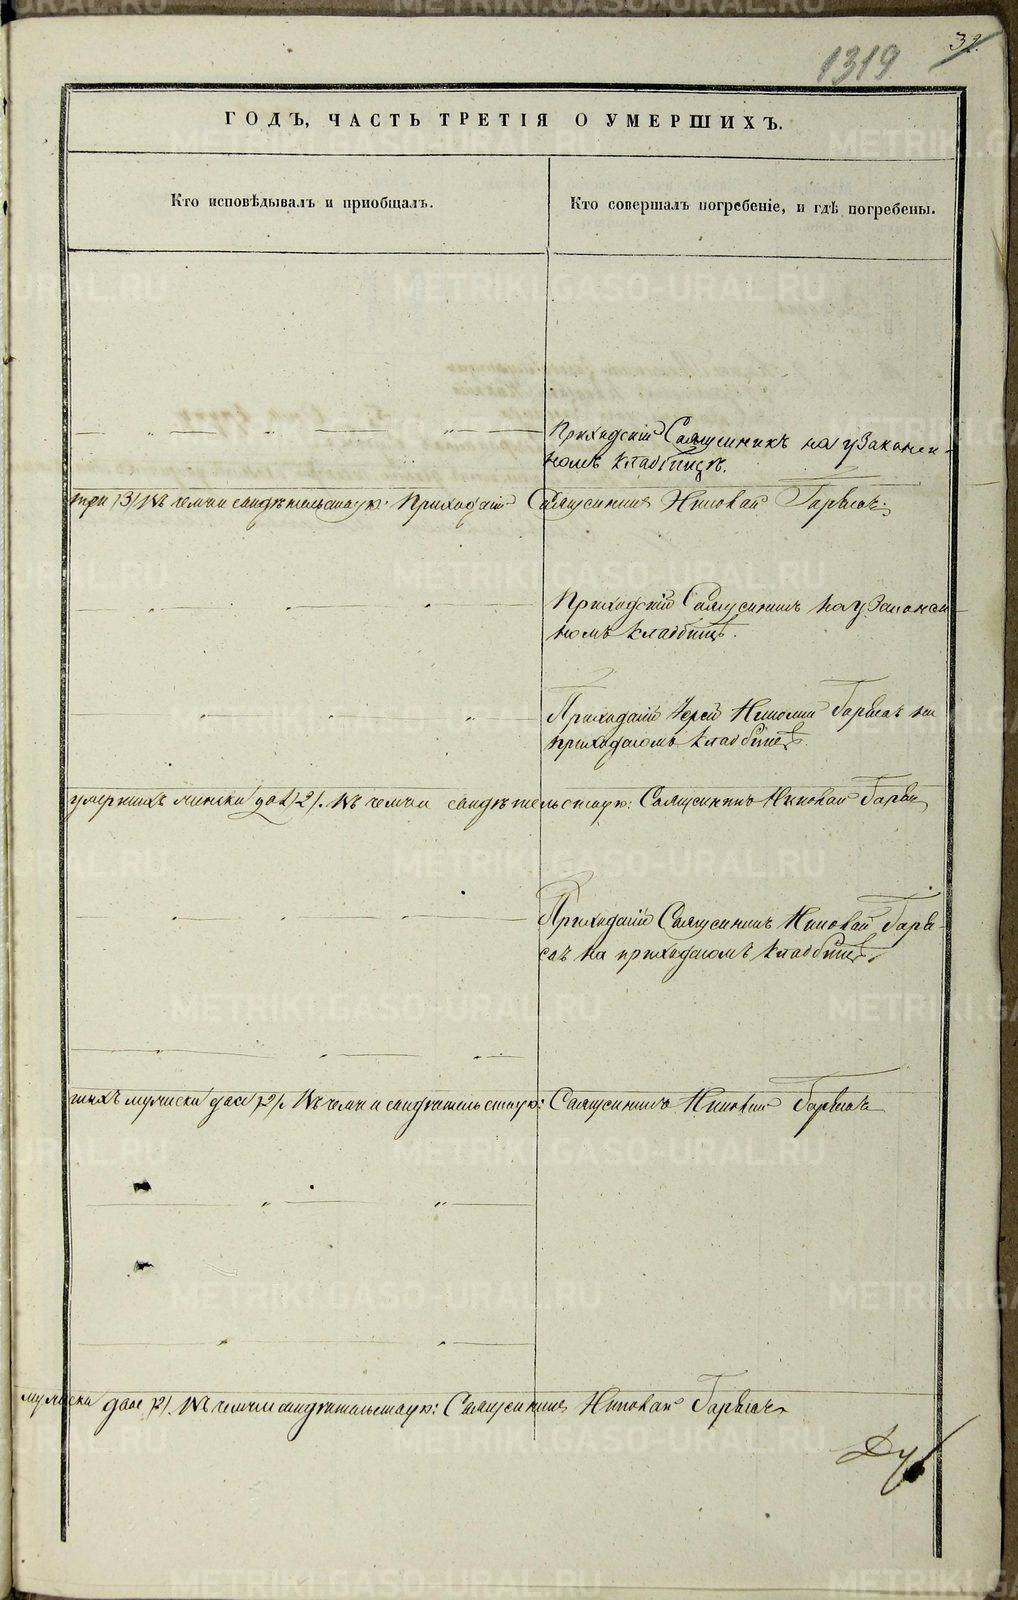 1319
32.
ГОДЪ, ЧАСТЬ ТРЕТІЯ О УМЕРШИХЪ.
Кто исповѣдывалъ и пріобщалъ.
Кто совершалъ погребеніе, и гдѣ погребены.
Приходскій Священникъ на узаконен-
номъ кладбищѣ.
три /3/ Въ чемъ и свидѣтельствую: Приходскій Священникъ Николай
Приходскій Священникъ на узаконен-
номъ кладбищѣ.
Приходскій Іерей Николай на
приходскомъ кладбищѣ.
умершихъ женска два /2/. Въ чемъ и свидѣтельствую: Священникъ Николай
Приходскій Священникъ Николай
на приходскомъ кладбищѣ.
мужска два /2/. Въ чемъ и свидѣтельствую: Священникъ Николай
мужска два /2/. Въ чемъ и свидѣтельствую: Священникъ Николай
METRIKI.GASO-URAL.RU